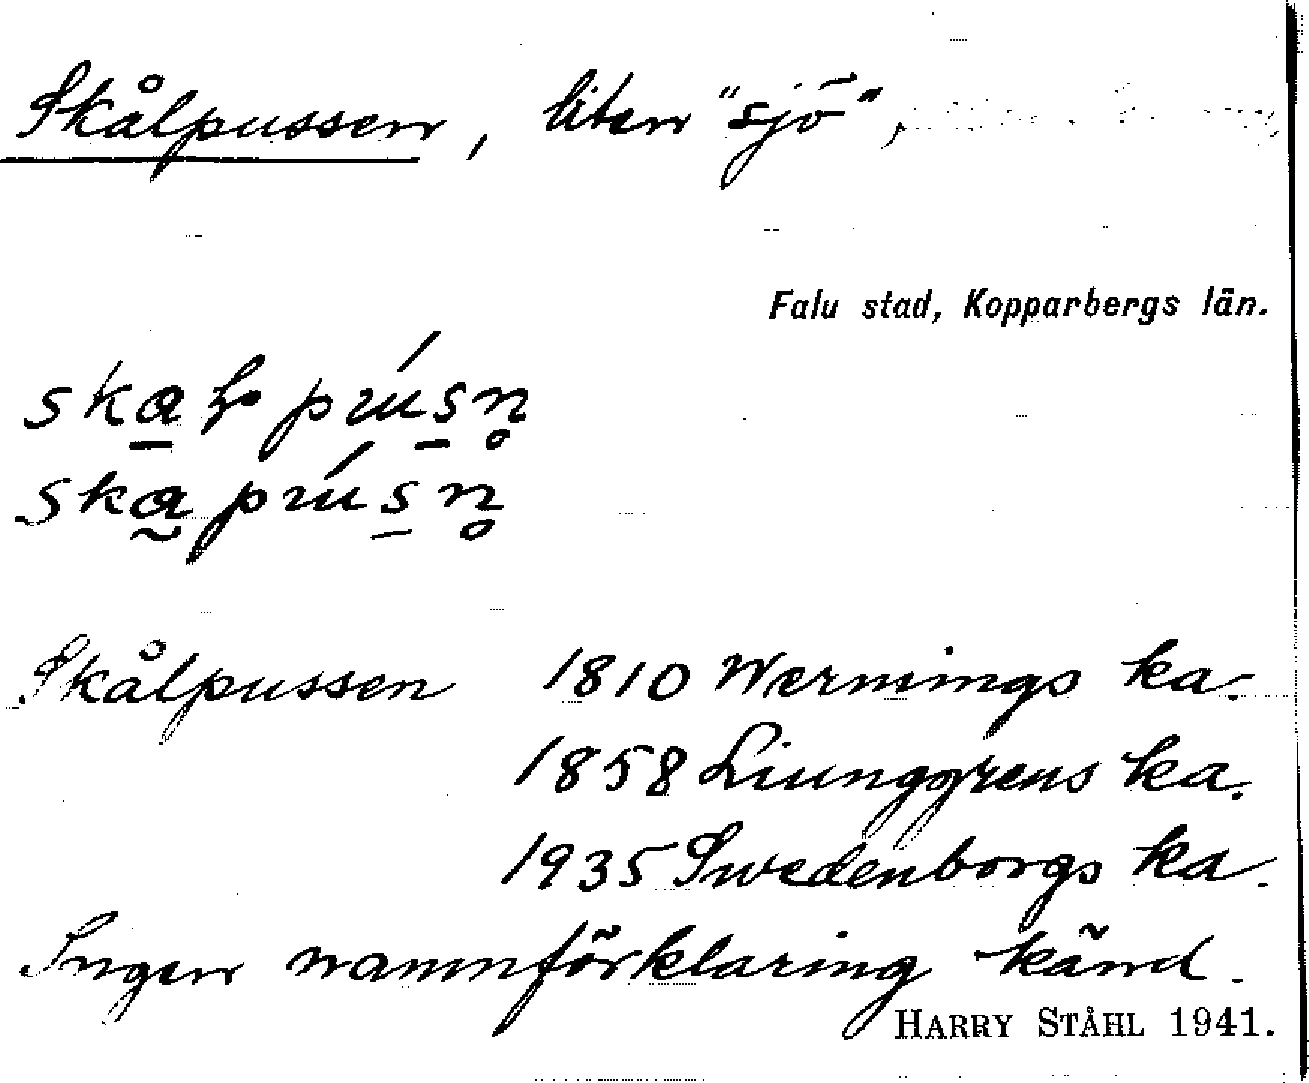 Skålpussen, liten "sjö",
Falu stad, Kopparbergs län.
Skålpussen 1810 Wernings ka.
1858 Liunggrens ka.
1935 Swedenborgs ka.
Ingen namnförklaring känd.
HARRY STÅHL 1941.